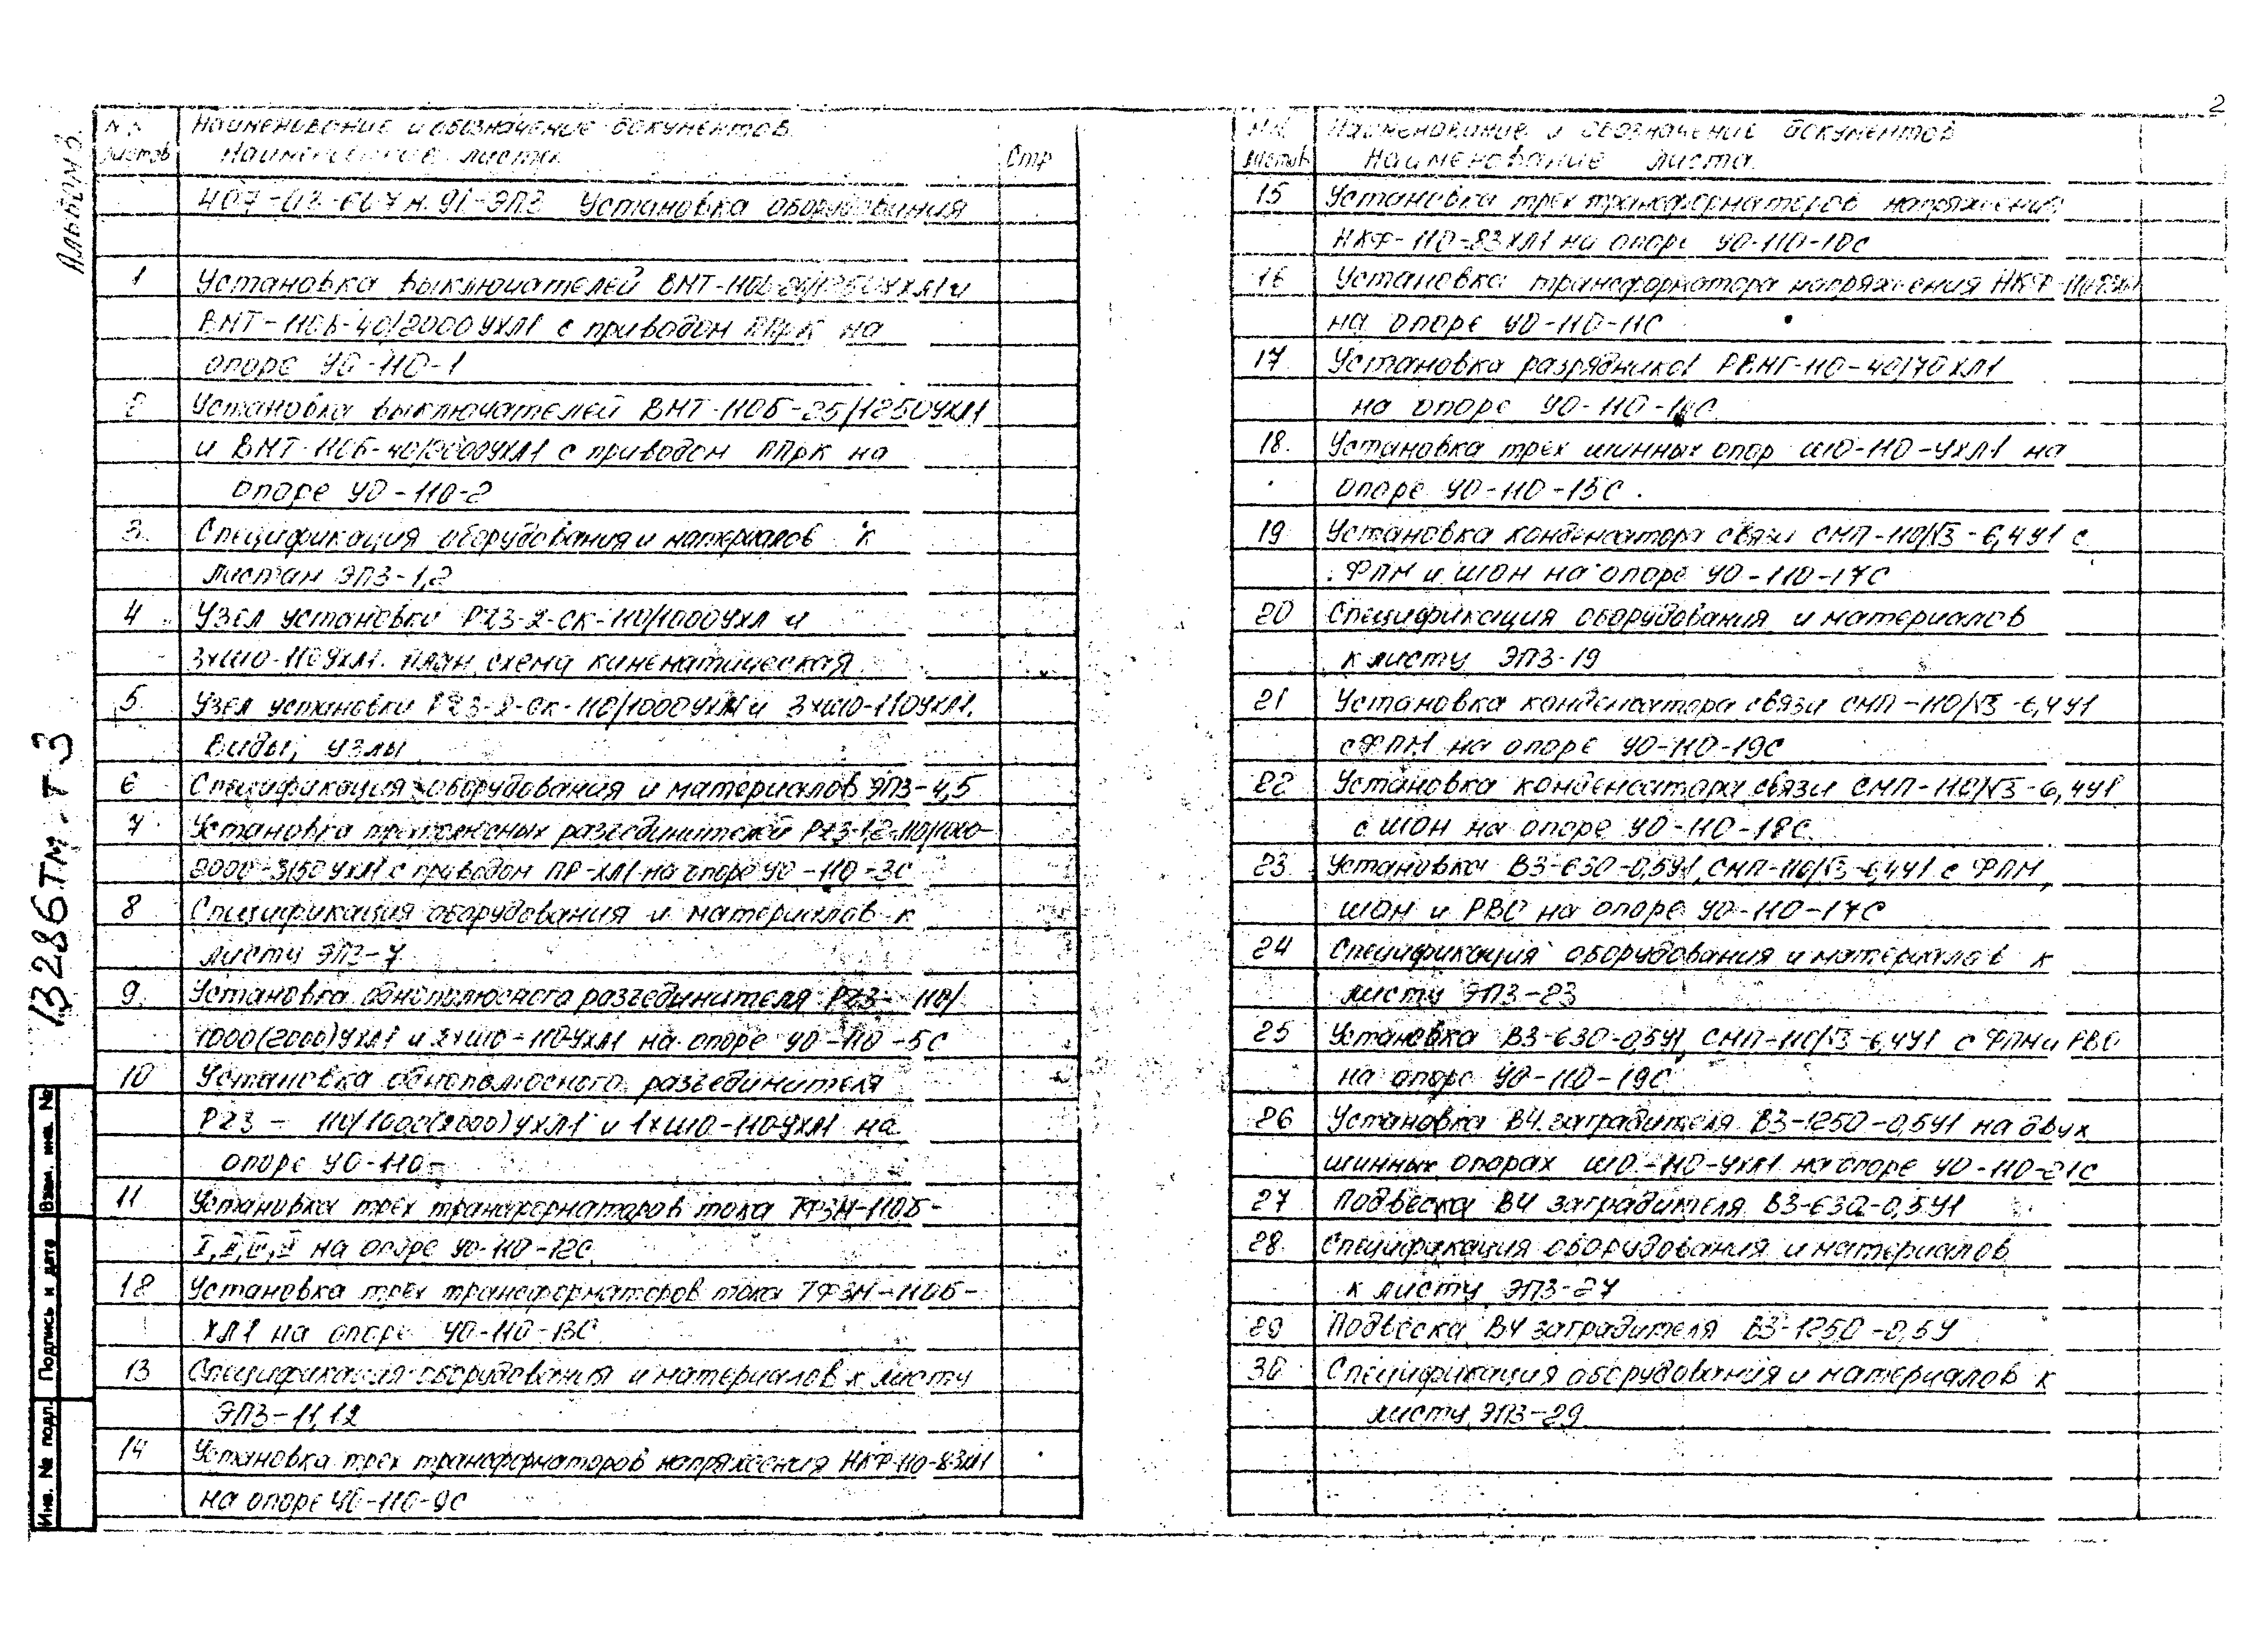 2
Альбом 3.
13286ТМ-Т3
Взам. инв. №
Подпись и дата
Инв. № подл.
NN Наименование и обозначение документов.
листов Наименование листа Стр
407-03-607м.91-ЭП3 Установка оборудования
1 Установка выключателей ВМТ-110Б-25/1250УХЛ1 и
ВМТ-110Б-40/2000УХЛ1 с приводом ППрК на
опоре УО-110-1
2 Установка выключателей ВМТ-110Б-25/1250УХЛ1
и ВМТ-110Б-40/2000УХЛ1 с приводом ППрК на
опоре УО-110-2
3 Спецификация оборудования и материалов к
листам ЭП3-1,2
4 Узел установки РДЗ-2-СК-110/1000УХЛ и
3хШО-110УХЛ1. План, схема кинематическая
5 Узел установки РДЗ-2-СК-110/1000УХЛ1 и 3хШО-110УХЛ1.
Виды, узлы
6 Спецификация оборудования и материалов ЭП3-4,5
7 Установка трехполюсных разъединителей РДЗ-1,2-110/1000-
2000-3150УХЛ1 с приводом ПР-ХЛ1 на опоре УО-110-3С
8 Спецификация оборудования и материалов к
листу ЭП3-7
9 Установка однополюсного разъединителя РДЗ- 110/
1000(2000)УХЛ1 и 2хШО-110УХЛ1 на опоре УО-110-5С
10 Установка однополюсного разъединителя
РДЗ- 110/1000(2000)УХЛ1 и 1хШО-110УХЛ1 на
опоре УО-110-
11 Установка трех трансформаторов тока ТФЗМ-110Б-
I, II, III, на опоре УО-110-12С
12 Установка трех трансформаторов тока ТФЗМ-110Б-
ХЛ1 на опоре УО-110-13С
13 Спецификация оборудования и материалов к листу
ЭП3-11,12
14 Установка трех трансформаторов напряжения НКФ-110-83ХЛ1
на опоре УО-110-9С
NN Наименование и обозначение документов
листов Наименование листа.
15 Установка трех трансформаторов напряжения
НКФ-110-83ХЛ1 на опоре УО-110-10С
16 Установка трансформатора напряжения НКФ-110-83ХЛ1
на опоре УО-110-11С
17 Установка разрядника РВМГ-110-40/70ХЛ1
на опоре
18. Установка трех шинных опор ШО-110-УХЛ1 на
опоре УО-110-15С.
19 Установка конденсатора связи СМП-110/√3-6,4У1 с
ФПМ и ШОН на опоре УО-110-17С
20 Спецификация оборудования и материалов
к листу ЭП3-19
21 Установка конденсатора связи СМП-110/√3-6,4У1
с ФПМ на опоре УО-110-19С
22 Установка конденсатора связи СМП-110/√3-6,4У1
с ШОН на опоре УО-110-18С.
23 Установка ВЗ-630-0,5У1, СМП-110/√3-6,4У1 с ФПМ,
ШОН и РВС на опоре УО-110-17С
24 Спецификация оборудования и материалов к
листу ЭП3-23
25 Установка ВЗ-630-0,5У1, СМП-110/√3-6,4У1 с ФПМ и РВС
на опоре УО-110-19С
26 Установка ВЧ заградителя ВЗ-1250-0,5У1 на двух
шинных опорах ШО-110-УХЛ1 на опоре УО-110-21С
27 Подвеска ВЧ заградителя ВЗ-630-0,5У1
28. Спецификация оборудования и материалов
к листу ЭП3-27
29 Подвеска ВЧ заградителя ВЗ-1250-0,5У
30 Спецификация оборудования и материалов к
листу ЭП3-29